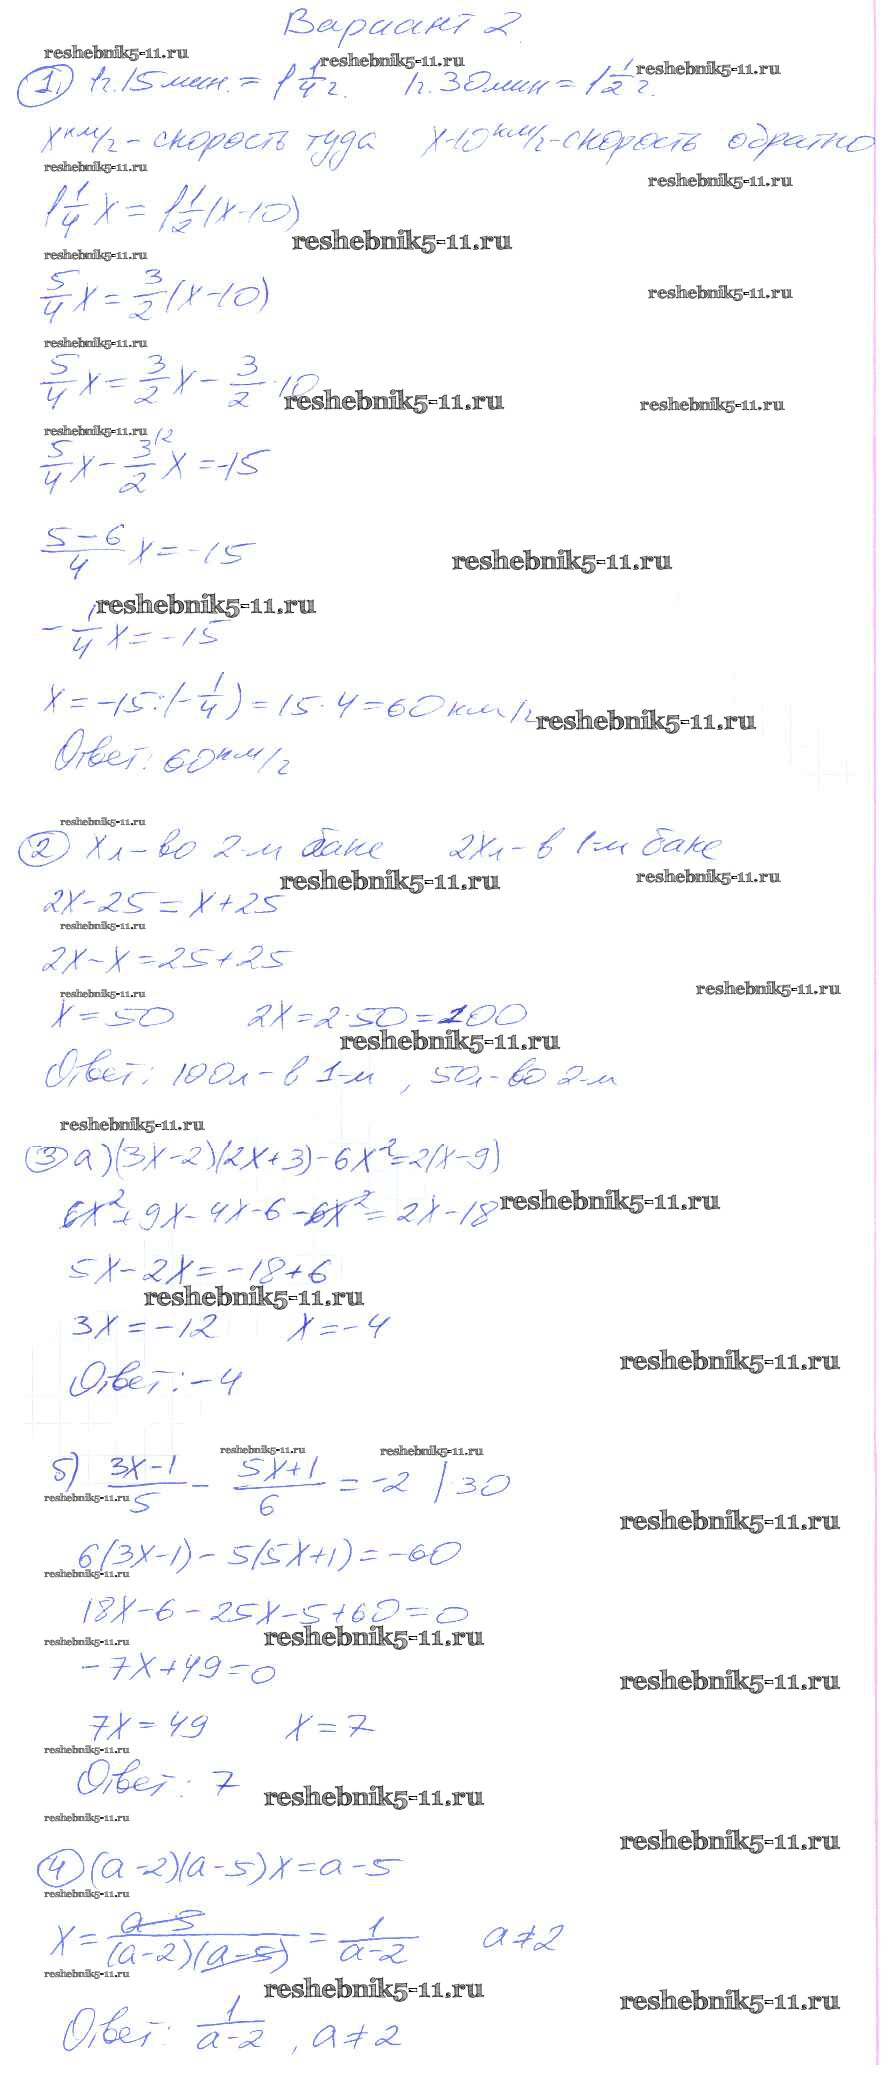 Вариант 2.
reshebnik5-11.ru
reshebnik5-11.ru
reshebnik5-11.ru
1) 1ч.15мин.=1 1/4 ч. 1ч.30мин=1 1/2 ч.
x км/ч - скорость туда x-10 км/ч-скорость обратно
reshebnik5-11.ru
reshebnik5-11.ru
1 1/4 x = 1 1/2 (x-10)
reshebnik5-11.ru
reshebnik5-11.ru
5/4 x = 3/2 (x-10)
reshebnik5-11.ru
reshebnik5-11.ru
5/4 x = 3/2 x - 3/2 · 10
reshebnik5-11.ru
reshebnik5-11.ru
reshebnik5-11.ru
5/4 x - 3/2 x = -15
5-6/4 x = -15
reshebnik5-11.ru
reshebnik5-11.ru
- 1/4 x = -15
x = -15:(-1/4) = 15·4 = 60 км/ч
reshebnik5-11.ru
Ответ: 60 км/ч
reshebnik5-11.ru
2) xл-во 2-м баке 2xл-в 1-м баке
reshebnik5-11.ru
reshebnik5-11.ru
2x-25=x+25
reshebnik5-11.ru
2x-x=25+25
reshebnik5-11.ru
reshebnik5-11.ru
x=50 2x=2·50=100
reshebnik5-11.ru
Ответ: 100л-в 1-м, 50л-во 2-м
reshebnik5-11.ru
3) а)(3x-2)(2x+3)-6x²=2(x-9)
6x²+9x-4x-6-6x²=2x-18
reshebnik5-11.ru
5x-2x=-18+6
reshebnik5-11.ru
3x=-12 x=-4
reshebnik5-11.ru
Ответ: -4
reshebnik5-11.ru
reshebnik5-11.ru
б) 3x-1/5 - 5x+1/6 = -2 |·30
reshebnik5-11.ru
reshebnik5-11.ru
6(3x-1)-5(5x+1)=-60
reshebnik5-11.ru
18x-6-25x-5+60=0
reshebnik5-11.ru
reshebnik5-11.ru
-7x+49=0
reshebnik5-11.ru
7x=49 x=7
reshebnik5-11.ru
Ответ: 7
reshebnik5-11.ru
reshebnik5-11.ru
reshebnik5-11.ru
4) (a-2)(a-5)x=a-5
reshebnik5-11.ru
x = a-5/(a-2)(a-5) = 1/a-2 a≠2
reshebnik5-11.ru
reshebnik5-11.ru
reshebnik5-11.ru
Ответ: 1/a-2, a≠2